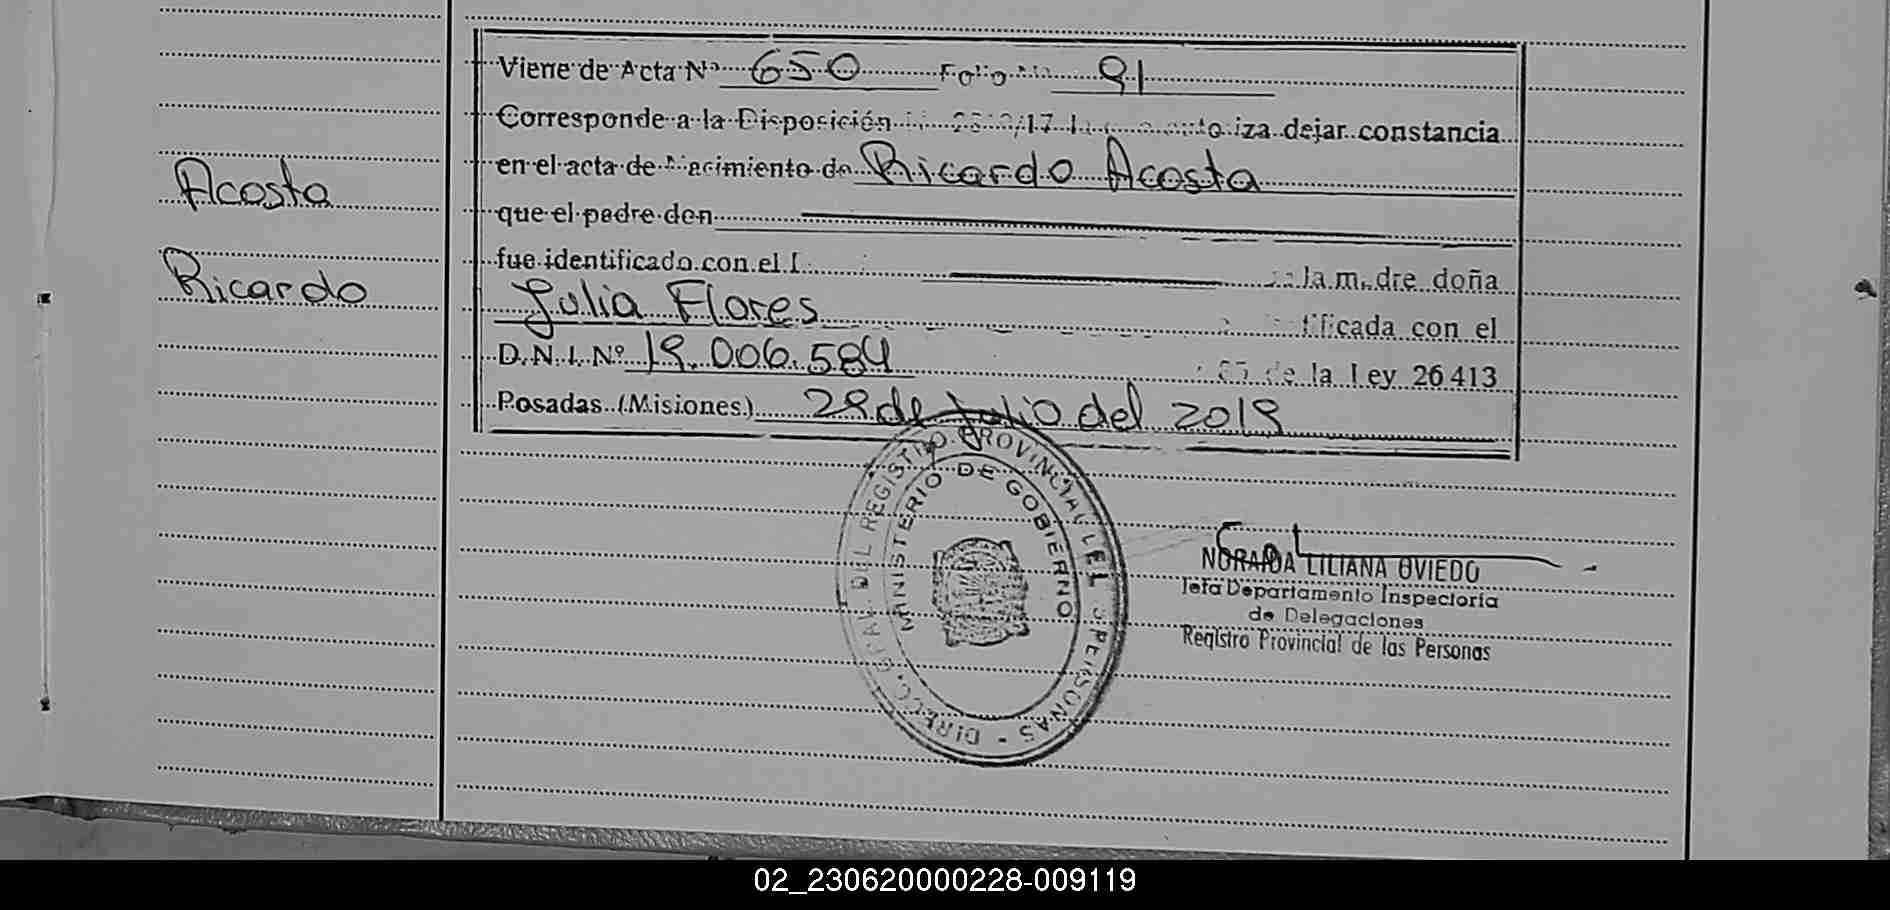 Viene de Acta Nº 650 Folio Nº 91
Corresponde a la Disposición /17 dejar constancia
en el acta de Nacimiento de Ricardo Acosta
que el padre don
fue identificado con el la madre doña
Julia Flores identificada con el
D.N.I. Nº 19.006.584 de la Ley 26413
Posadas (Misiones) 29 de Julio del 2019
Acosta
Ricardo
DIRECC. GRAL. DEL REGISTRO PROVINCIAL DE LAS PERSONAS -
MINISTERIO DE GOBIERNO
NORAIDA LILIANA OVIEDO
Jefa Departamento Inspectoría
de Delegaciones
Registro Provincial de las Personas
02_230620000228-009119